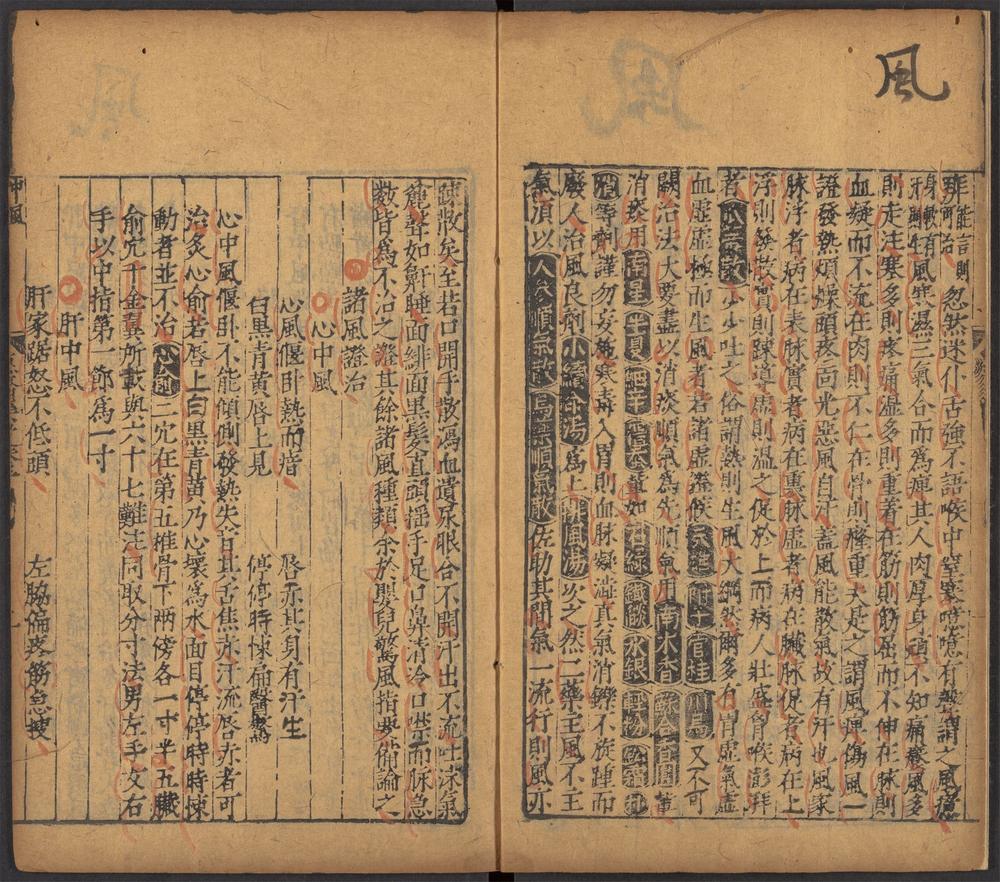 風
非能言則
身軟有
忽然迷仆舌強不語喉中窒塞噫噫有聲謂之風癔
風寒濕三氣合而為痺其人肉厚身頑不知痛癢風多
則走注寒多則疼痛濕多則重着在筋則筋屈而不伸在脉則
血凝而不流在肉則不仁在骨則癃重夫是之謂風痺傷風一
證發熱煩燥頭疼面光惡風自汗蓋風能散氣故有汗也風家
脉浮者病在表脉實者病在裏脉虛者病在臟脉促者病在上
浮則發散實則踈導虛則溫之促於上而病人壯盛胷喉澎拜
者少少吐之俗謂熱則生風大綱然爾多有胃虛氣虛
血虛虛極而生風者若諸虛證候永附子官桂川烏又不可
闕治法大要盡以消淡順氣為先順氣用南木香蘇合香圓輩
消痰用南星半夏細辛輩如石綠鐵液水銀輕粉
等劑謹勿妄施寒毒入胃則血脉凝澁真氣消鑠不旋踵而
廢人治風良劑小續命湯為上排風湯次之然二藥主風不主
氣湏以人參順氣散烏藥順氣散佐助其間氣一流行則風亦
踈散矣至若口開手散瀉血遺尿眼合不開汗出不流吐沫氣
麄聲如鼾睡面緋面黑髮直頭揺手足口鼻清冷口噤而脉急
数皆為不治之證其餘諸風種類余於嬰兒驚風指要備論之
諸風證治
心中風
心風偃卧熱而瘖
唇赤其身有汗生
白黒青黃唇上見
停停時悚
心中風偃卧不能傾側發熱失音其舌焦赤汗流唇赤者可
治灸心俞若唇上白黒青黃乃心壞為水面目停停時時悚
動者並不治心俞二穴在第五椎骨下兩傍各一寸半五臟
俞穴千金翼所載與六十七難注同取分寸法男左手女右
手以中指第一節為一寸
肝中風
肝家踞怒不低頭
左脇偏疼筋急搜
中風